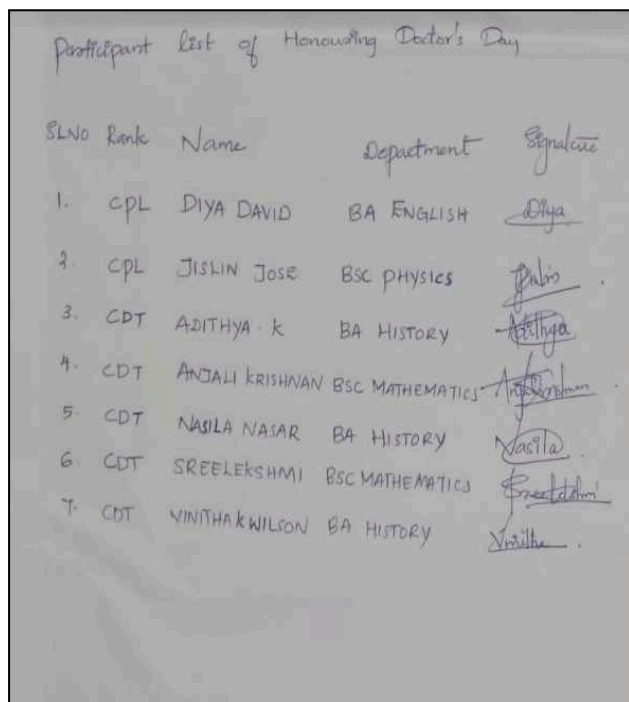 Participant list of Honouring Doctor's Day
SLNO Rank Name Department Signature
1. CPL DIYA DAVID BA ENGLISH Diya
2. CPL JISLIN JOSE BSC PHYSICS
3. CDT ADITHYA . K BA HISTORY Adithya
4. CDT ANJALI KRISHNAN BSC MATHEMATICS
5. CDT NASILA NASAR BA HISTORY Nasila
6. CDT SREELEKSHMI BSC MATHEMATICS
7. CDT VINITHA K WILSON BA HISTORY Vinitha